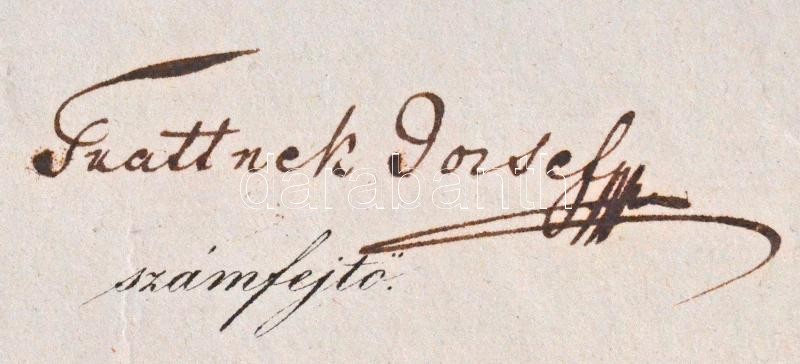 Trattnek József
számfejtő.
darabanth